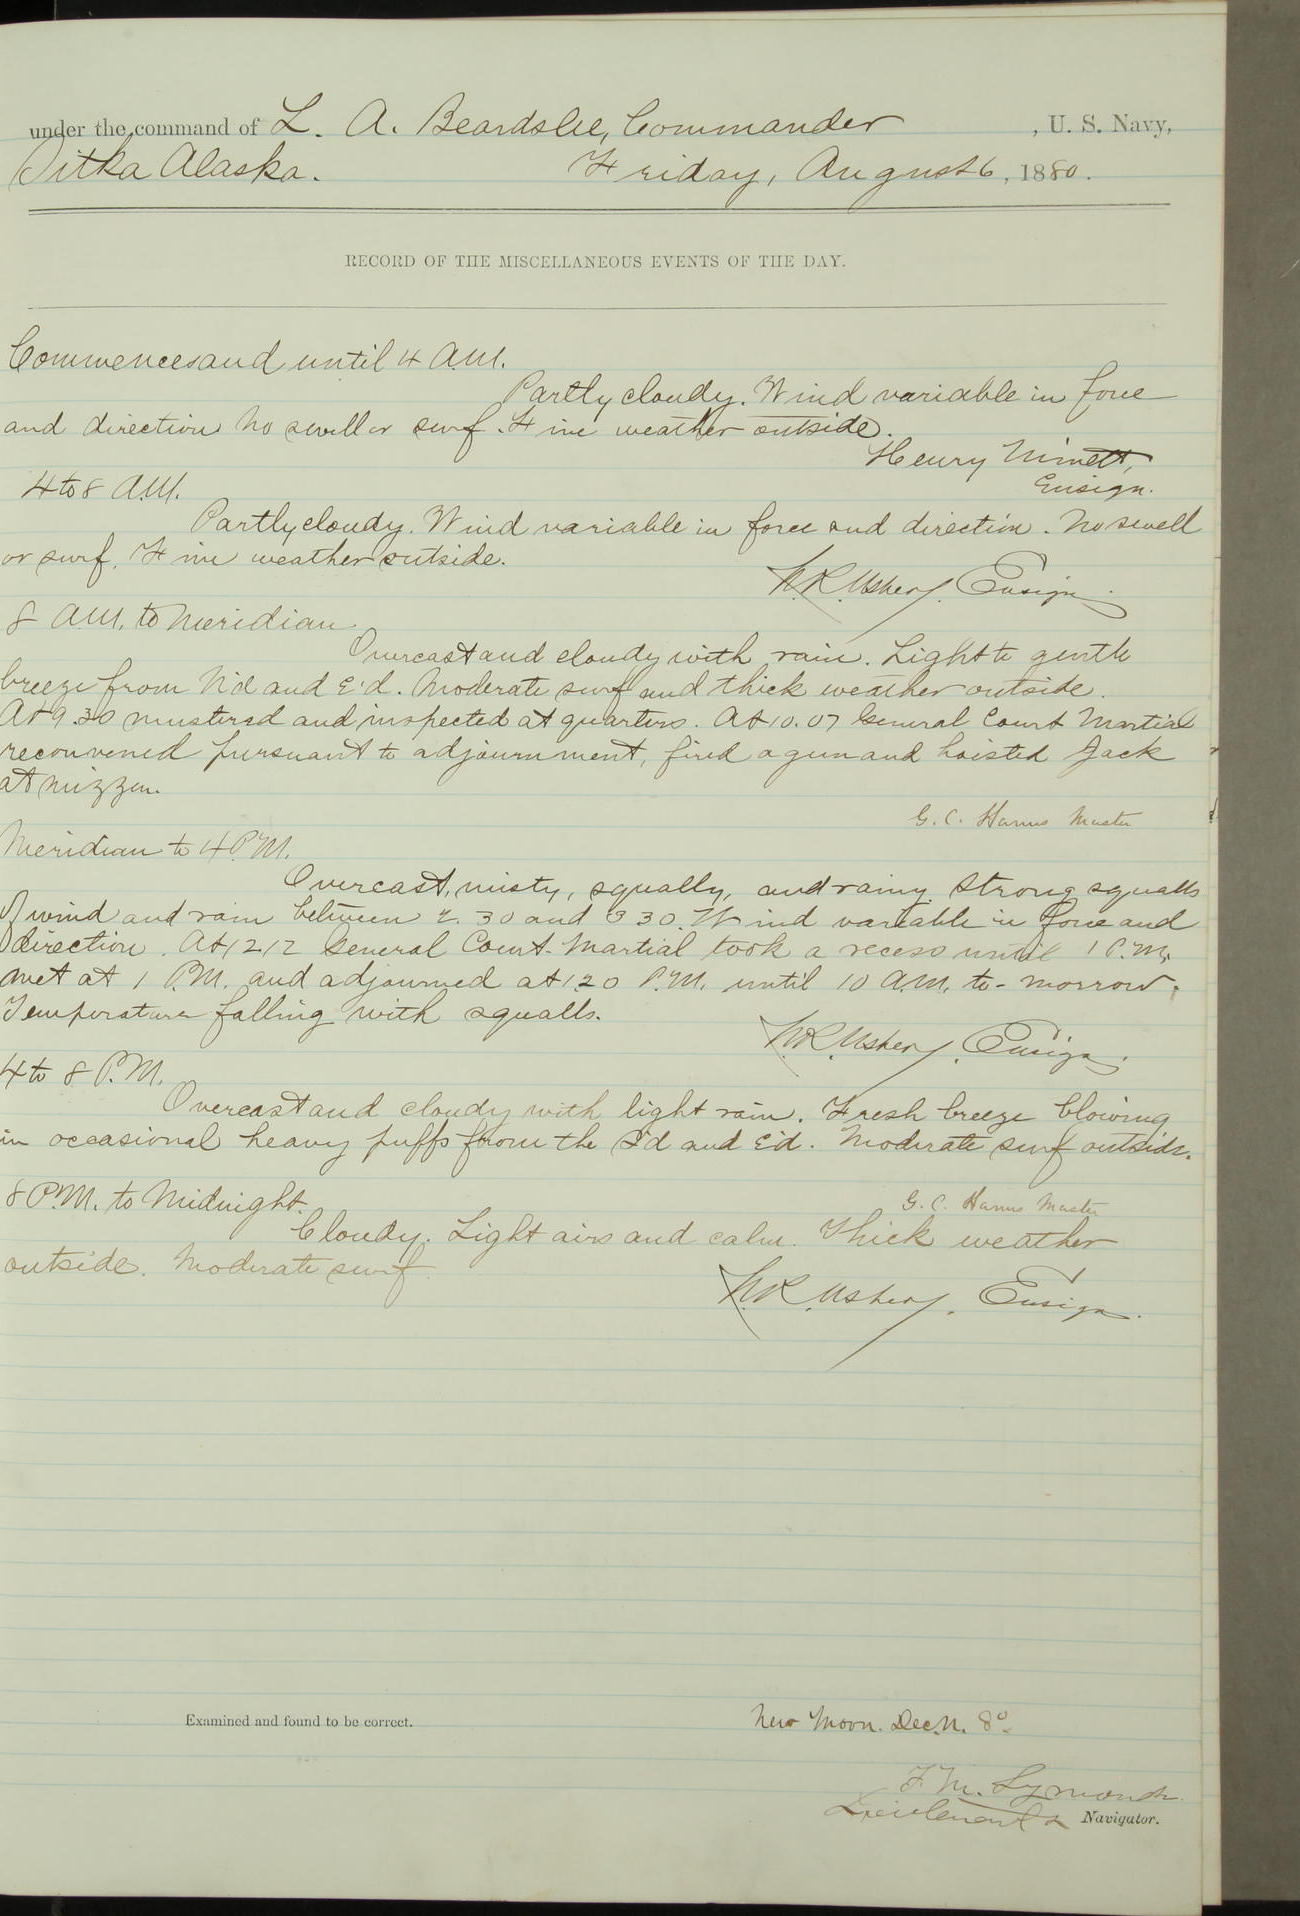 under the command of L. A. Beardslee, Commander, U. S. Navy,
Sitka Alaska. Friday, August 6, 1880.
RECORD OF THE MISCELLANEOUS EVENTS OF THE DAY.
Commences and until 4 A.M.
Partly cloudy. Wind variable in force
and direction No swell or surf. Fine weather outside.
Henry Minett,
Ensign.
4 to 8 A.M.
Partly cloudy. Wind variable in force and direction. No swell
or surf. Fine weather outside.
N. R. Usher, Ensign.
8 A.M. to Meridian
Overcast and cloudy with rain. Light to gentle
breeze from N'd and E'd. Moderate surf and thick weather outside.
At 9.30 mustered and inspected at quarters. At 10.07 General Court Martial
reconvened pursuant to adjournment, fired a gun and hoisted Jack
at mizzen.
G. C. Hanus Master
Meridian to 4 P.M.
Overcast, misty, squally, and rainy. Strong squalls
of wind and rain between 2.30 and 3 30. Wind variable in force and
direction. At 12 12 General Court-Martial took a recess until 1 P.M.
met at 1 P.M. and adjourned at 1.20 P.M. until 10 A.M. to-morrow.
Temperature falling with squalls.
N. R. Usher, Ensign.
4 to 8 P.M.
Overcast and cloudy with light rain. Fresh breeze blowing
in occasional heavy puffs from the S'd and E'd. Moderate surf outside.
G. C. Hanus Master
8 P.M. to Midnight.
Cloudy. Light airs and calm. Thick weather
outside. Moderate surf.
N. R. Usher, Ensign.
Examined and found to be correct.
New Moon. Dec. N. 8°
F. M. Symonds
Lieutenant & Navigator.